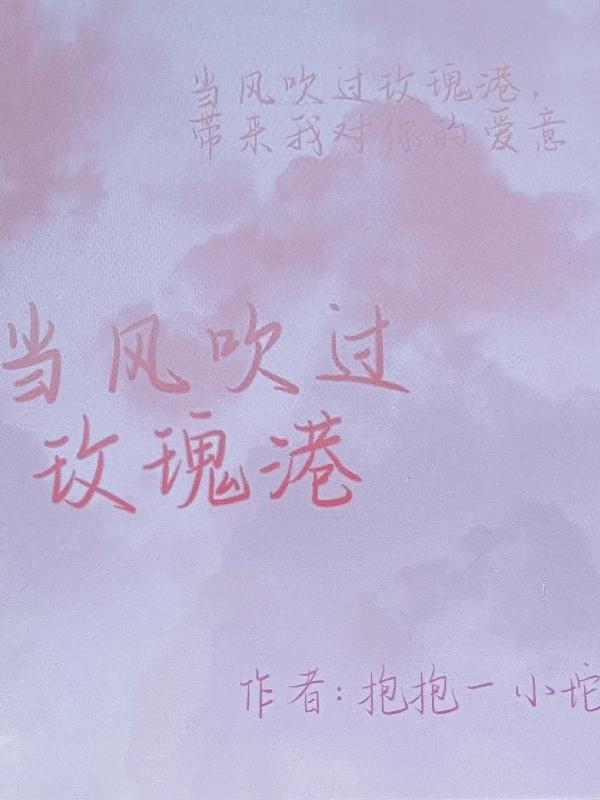 当风吹过玫瑰港，
带来我对你的爱意
当风吹过
玫瑰港
作者：抱抱一小坨